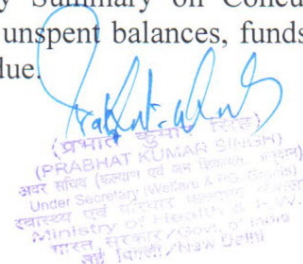 y Summary on Concu
unspent balances, funds
due.
(प्रभात कुमार सिंह)
(PRABHAT KUMAR SINGH)
अवर सचिव (कल्याण एवं
Under Secretary (Welfare & PG, Grants)
स्वास्थ्य एवं परिवार कल्याण
Ministry of Health & F.W.
भारत सरकार/Govt. of India
नई दिल्ली/New Delhi